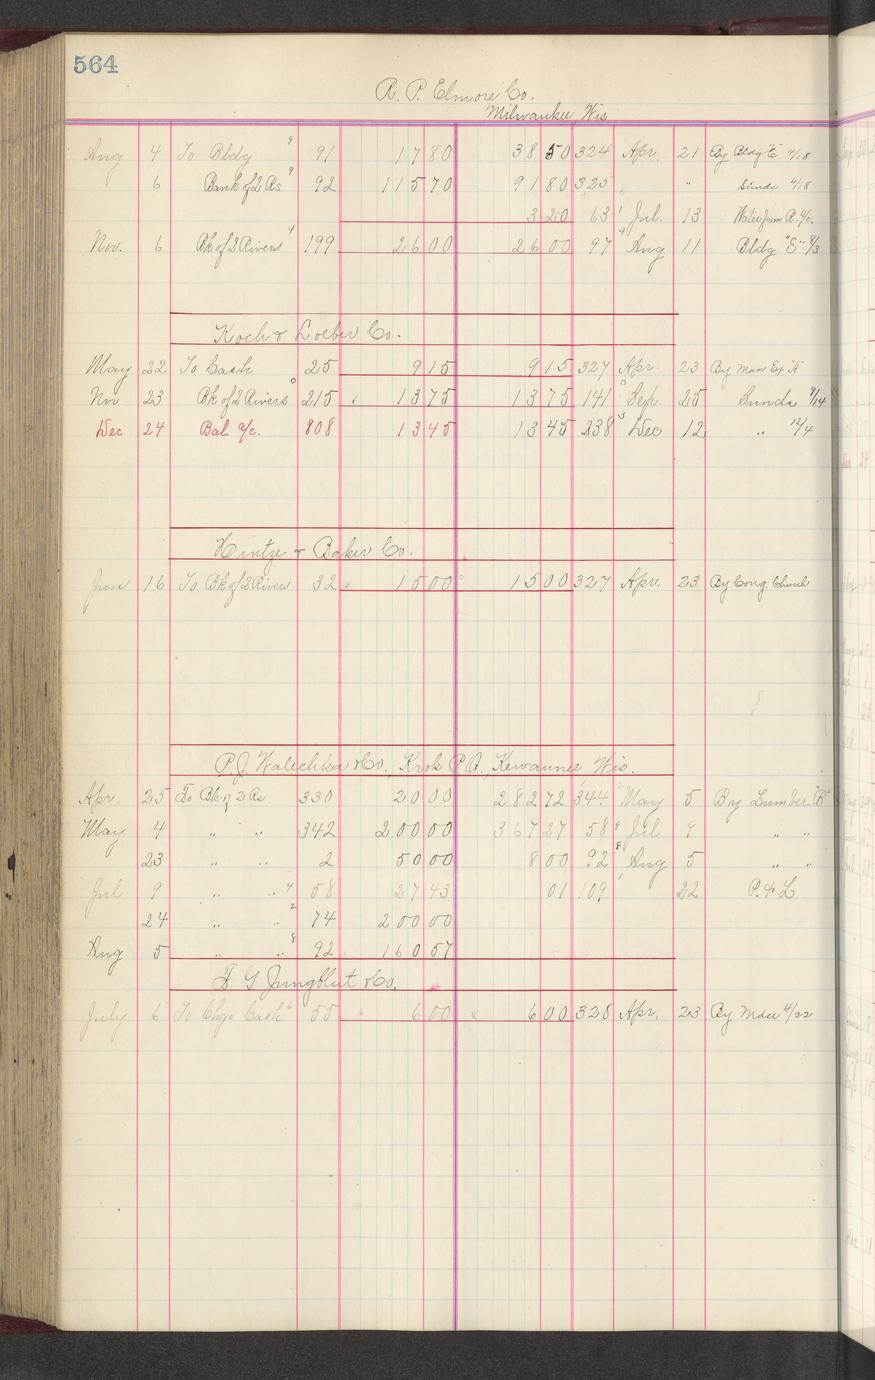 564
R. P. Elmore Co.
Milwaukee, Wis
Aug 4 To Bldg 9 91 17 80 38 50 324 Apr. 21 By Bldg "E" 4/18
6 Bank of 2 Rs 9 92 115 70 91 80 325 " " Sunds 4/18
3 20 63 1 Jul. 13 Water from R. a/c.
Nov. 6 Bk of 2 Rivers 4 199 26 00 26 00 97 4 Aug 11 Bldg "E" 8/3
Koch & Loeber Co.
May 22 To Cash 25 9 15 9 15 327 Apr. 23 By Man Ex "A"
Nov 23 Bk of 2 Rivers 0 215 13 75 13 75 141 0 Sep. 25 Sunds 9/14
Dec 24 Bal. a/c. 808 13 45 13 45 238 3 Dec 12 " 12/4
Hintze & Baker Co.
Jun 16 To Bk of 2 Rivers 32 15 00 15 00 327 Apr. 23 By Cong. Church
P. J. Walechka & Co., Krok P.O., Kewaunee Wis.
Apr. 25 To Bk of 2 Rs. 330 20 00 282 72 344 May 5 By Lumber "B"
May 4 " " 342 200 00 367 27 58 9 Jul 9 " "
23 " " 2 50 00 8 00 92 8 Aug 5 " "
Jul 9 " " 4 58 27 43 01 109 22 P. & L
24 " " 2 74 200 00
Aug 5 " " 8 92 160 57
F. G Jungblut & Co.
July 6 To Chgo Cash 6 55 6 00 6 00 328 Apr. 23 By Mdse 4/22